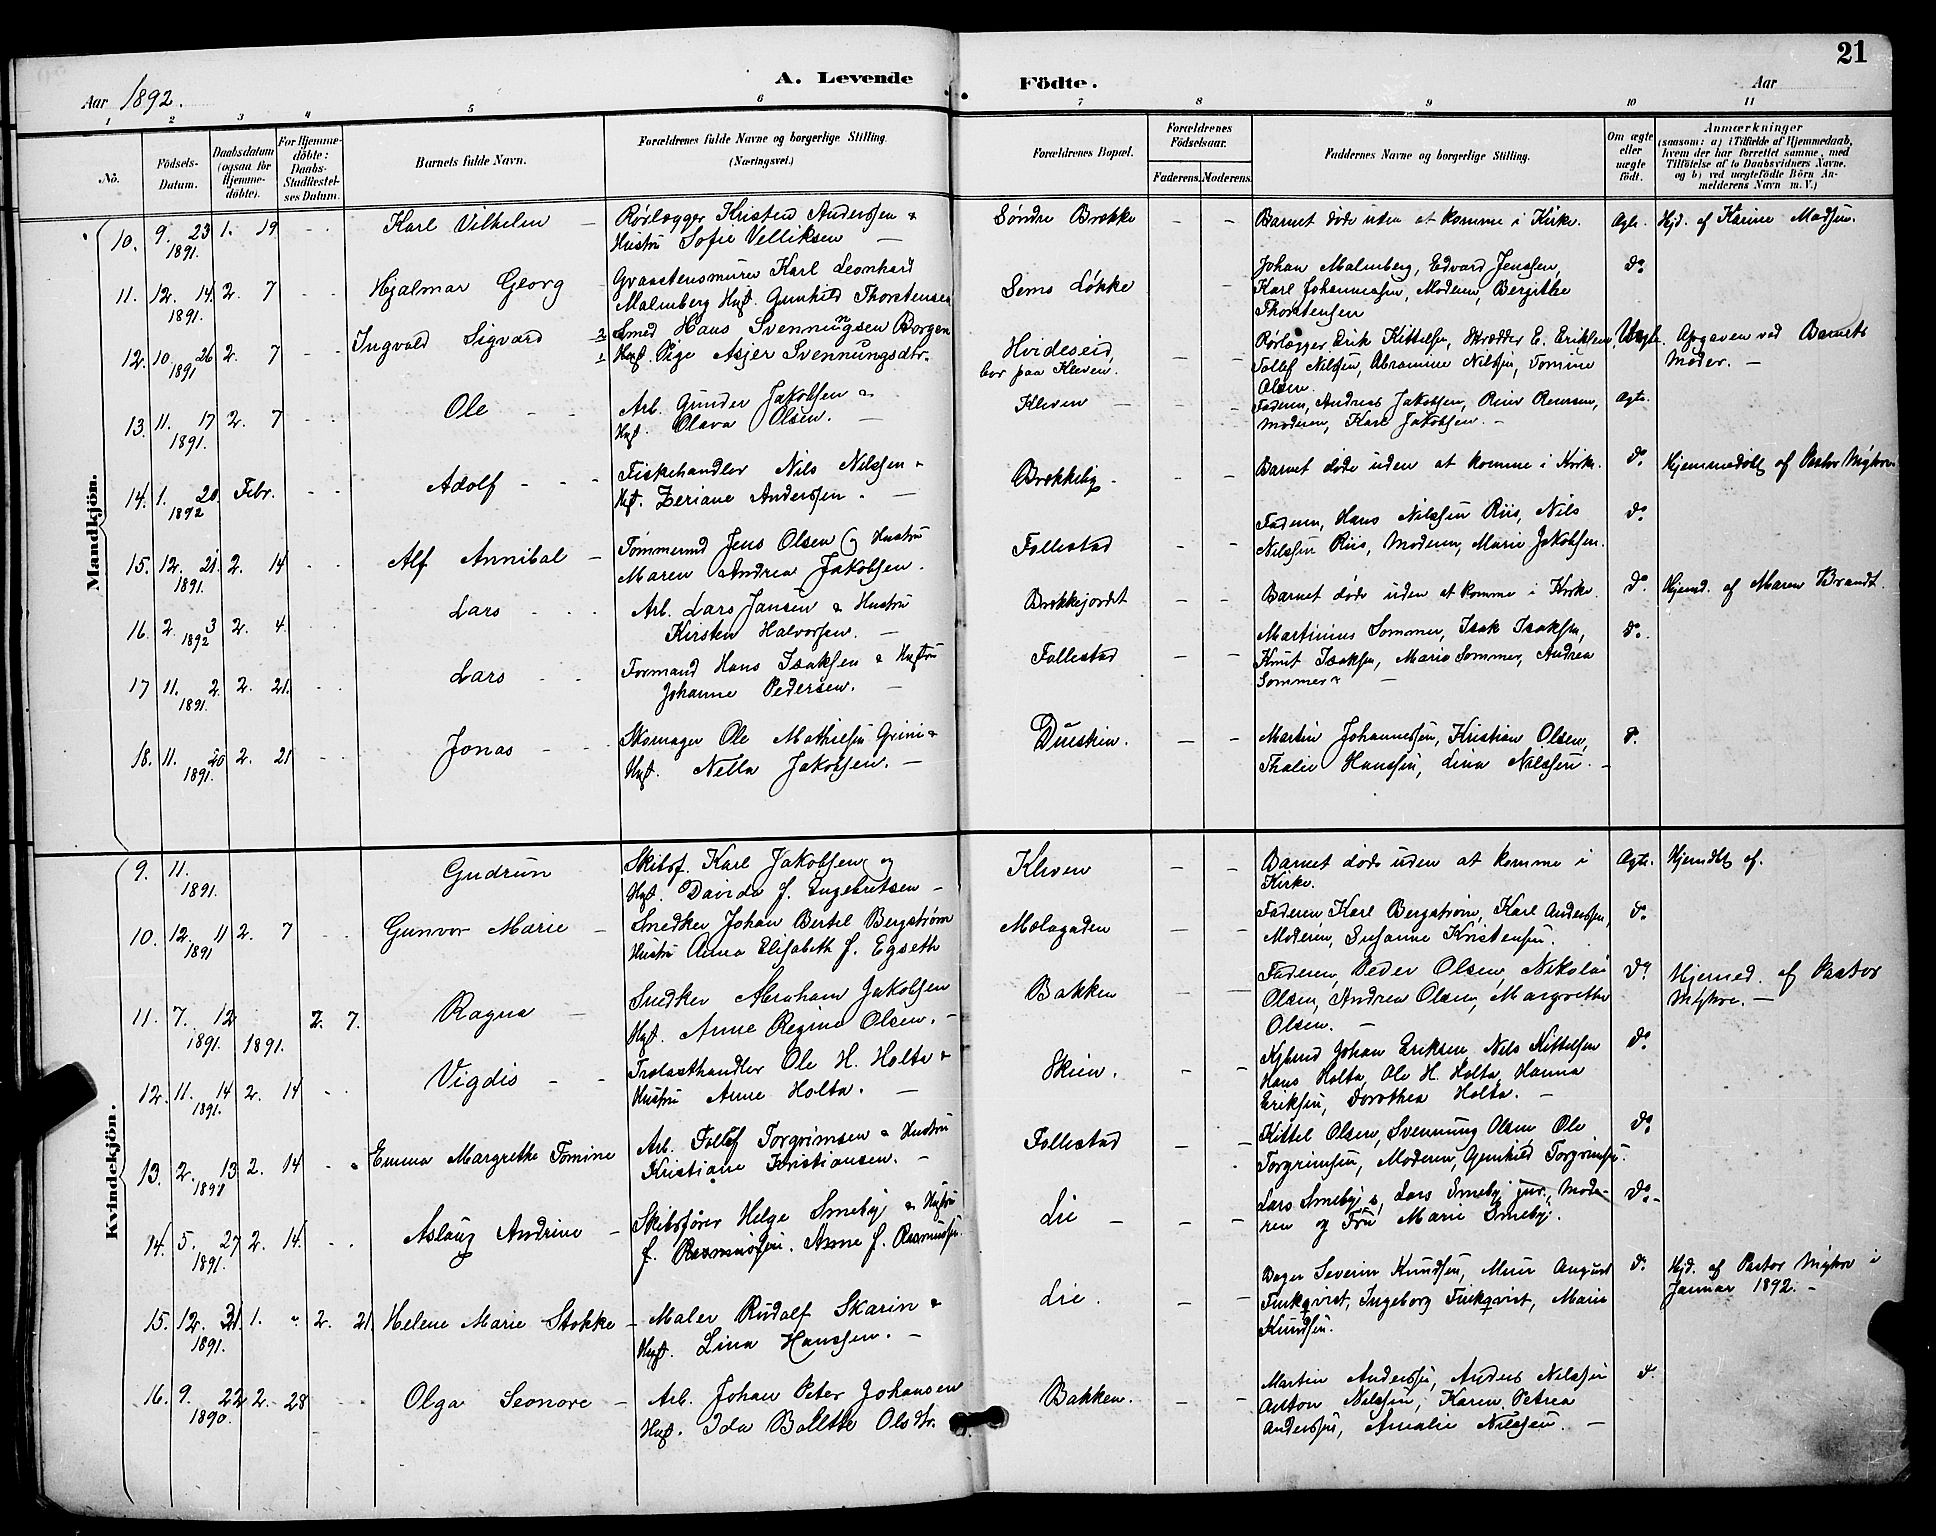 21
Aar 1892.
A. Levende
Födte.
Aar
1 2 3 4 5 6 7 8 9 10 11
No.
Födsels-Datum.
Daabsdatum (ogsaa for Hjemmedöbte).
For Hjemmedöbte: Daabs-Stadfæstelses Datum.
Barnets fulde Navn.
Forældrenes fulde Navne og borgerlige Stilling. (Næringsvei.)
Forældrenes Bopæl.
Forældrenes Födselsaar.
Faderens. Moderens.
Faddernes Navne og borgerlige Stilling.
Om ægte eller uægte födt.
Anmærkninger
(saasom: a) i Tilfælde af Hjemmedaab, hvem der har forrettet samme, med Tilföielse af to Daabsvidners Navne, og b) ved uægtefödte Börn Anmelderens Navn m. V.)
Mandkjön.
10. 9. 23 1891. 1. 19 Karl Vilhelm Rørlægger Kristen Anderssen &
Hustru Sofie Velliksen
Søndre Brække Barnet døde uden at komme i Kirke. Ægte. Hjd. af Karine Madsen.
11. 12. 14. 1891. 2. 7 Hjalmar Georg Graastensmurer Karl Leonhard
Malmberg Hust. Gunhild Thorstensen
Sems Løkke Johan Malmberg, Edvard Jenssen,
Karl Johannessen, Moderen, Bergitte
Thorstensen do
12. 10. 26 1891 2. 7 Ingvald Sigvard Smed Hans Svenningsen Borgen
Pige Asjer Svennungsdtr.
Hvideseid,
bor paa Kleven.
Rørlægger Eirik Kittelsen, Skrædder E. Eriksen,
Tollef Nilssen, Abramine Nilssen, Tomine
Olsen Uægte. Opgaven ved Barnets
Moder.
13. 11. 17 1891. 2. 7 Ole Arb. Gunder Jakobsen &
Hust. Olava Olsen.
Kleven Faderen, Andreas Jakobsen,
Moderen, Karl Jakobsen. Ægte.
14. 1. 20 1892 Febr. Adolf Fiskehandler Nils Nilssen &
Hust. Zeriane Anderssen.
Brækkelig Barnet døde uden at komme i Kirke. do Hjemmedøbt af Pastor
15. 12. 21. 1891. 2. 14 Alf Annibal Tømmermd Jens Olsen og Hustru
Maren Andrea Jakobsen.
Follestad Faderen, Hans Nilssen Riis, Nils
Nilssen Riis, Moderen, Marie Jakobsen. do
16. 2. 3 1892 2. 4. Lars Arb. Lars Jansen & Hustru
Kirsten Halvorsen.
Brækkejordet Barnet døde uden at komme i Kirke. do. Hjemd. af Maren Brandt.
17 11. 2. 1891. 2. 21. Lars Formand Hans Isaksen & Hustru
Johanne Pedersen.
Follestad Martinius Sommer, Isak Isaksen,
Knut Isaksen, Marie Sommer, Andrea
Sommer do.
18. 11. 20 1891. 2. 21 Jonas Skomager Ole Mathisen Grini &
Hust. Nella Jakobsen.
Martin Johannessen, Kristian Olsen,
Thalie Hanssen, Lina Nilssen. do.
Kvindekjön.
9. 11. 1891. Gudrun Skibsf. Karl Jakobsen og
Hust. Davida f. Engebretsen
Kleven Barnet døde uden at komme i
Kirke. Ægte. Hjemdbt af.
10. 12. 11 1891 2. 7 Gunvor Marie Snedker Johan Bertel Bergstrøm
Hustru Anna Elisabeth f. Egseth
Mælagaden Faderen Karl Bergstrøm, Karl Anderssen,
Moderen, Susanne Kristensen. do.
11. 7. 12 1891. 1891. 2. 7. Ragna Snedker Abraham Jakobsen
Hust. Anne Regine Olsen.
Bakken Faderen, Peder Olsen, Nikolai
Olsen, Andrea Olsen, Margrethe
Olsen. do. Hjemed. af Pastor
12. 11. 14 1891. 2. 14 Vigdis Trælasthandler Ole H. Holta &
Hustru Anne Holta.
Skien. Kjøbmd Johan Eriksen, Nils Kittelsen
Hans Holta, Ole H. Holta, Hanna
Eriksen, Dorothea Holta. do
13. 2. 13 2. 14 Emma Margrethe Tomine Arb. Tollef Torgrimsen & Hustru
Kristiane Kristiansen.
Follestad Kittel Olsen, Svennung Olsen Ole
Torgrimsen, Moderen, Gunhild Torgrimsen. do
14. 5. 27 1891. 2. 14. Aslaug Andrine Skibsfører Helge Smeby & Hustru
Anne f. Rasmussen.
Lie Lars Smeby s, Lars Smeby jnr., Mode-
ren og Fru Marie Smeby. do.
15. 12. 31. 1891. 1. 2. 21. Helene Marie Stokke Maler Rudolf Skarin &
Hust. Lina Hanssen.
Lie. Bager Severin Knudsen, Murer August
Finkqvist, Ingeborg Finkqvist, Marie
Knudsen. do. Hjd. af Pastor i
Januar 1892.
16. 9. 22 1890. 2. 28 Olga Leonore Arb. Johan Peter Johansen
Hust. Ida Bolette Olsdtr.
Bakken. Martin Anderssen, Anders Nilssen
Anton Nilssen, Karen Petrea
Anderssen, Amalie Nilssen. do.